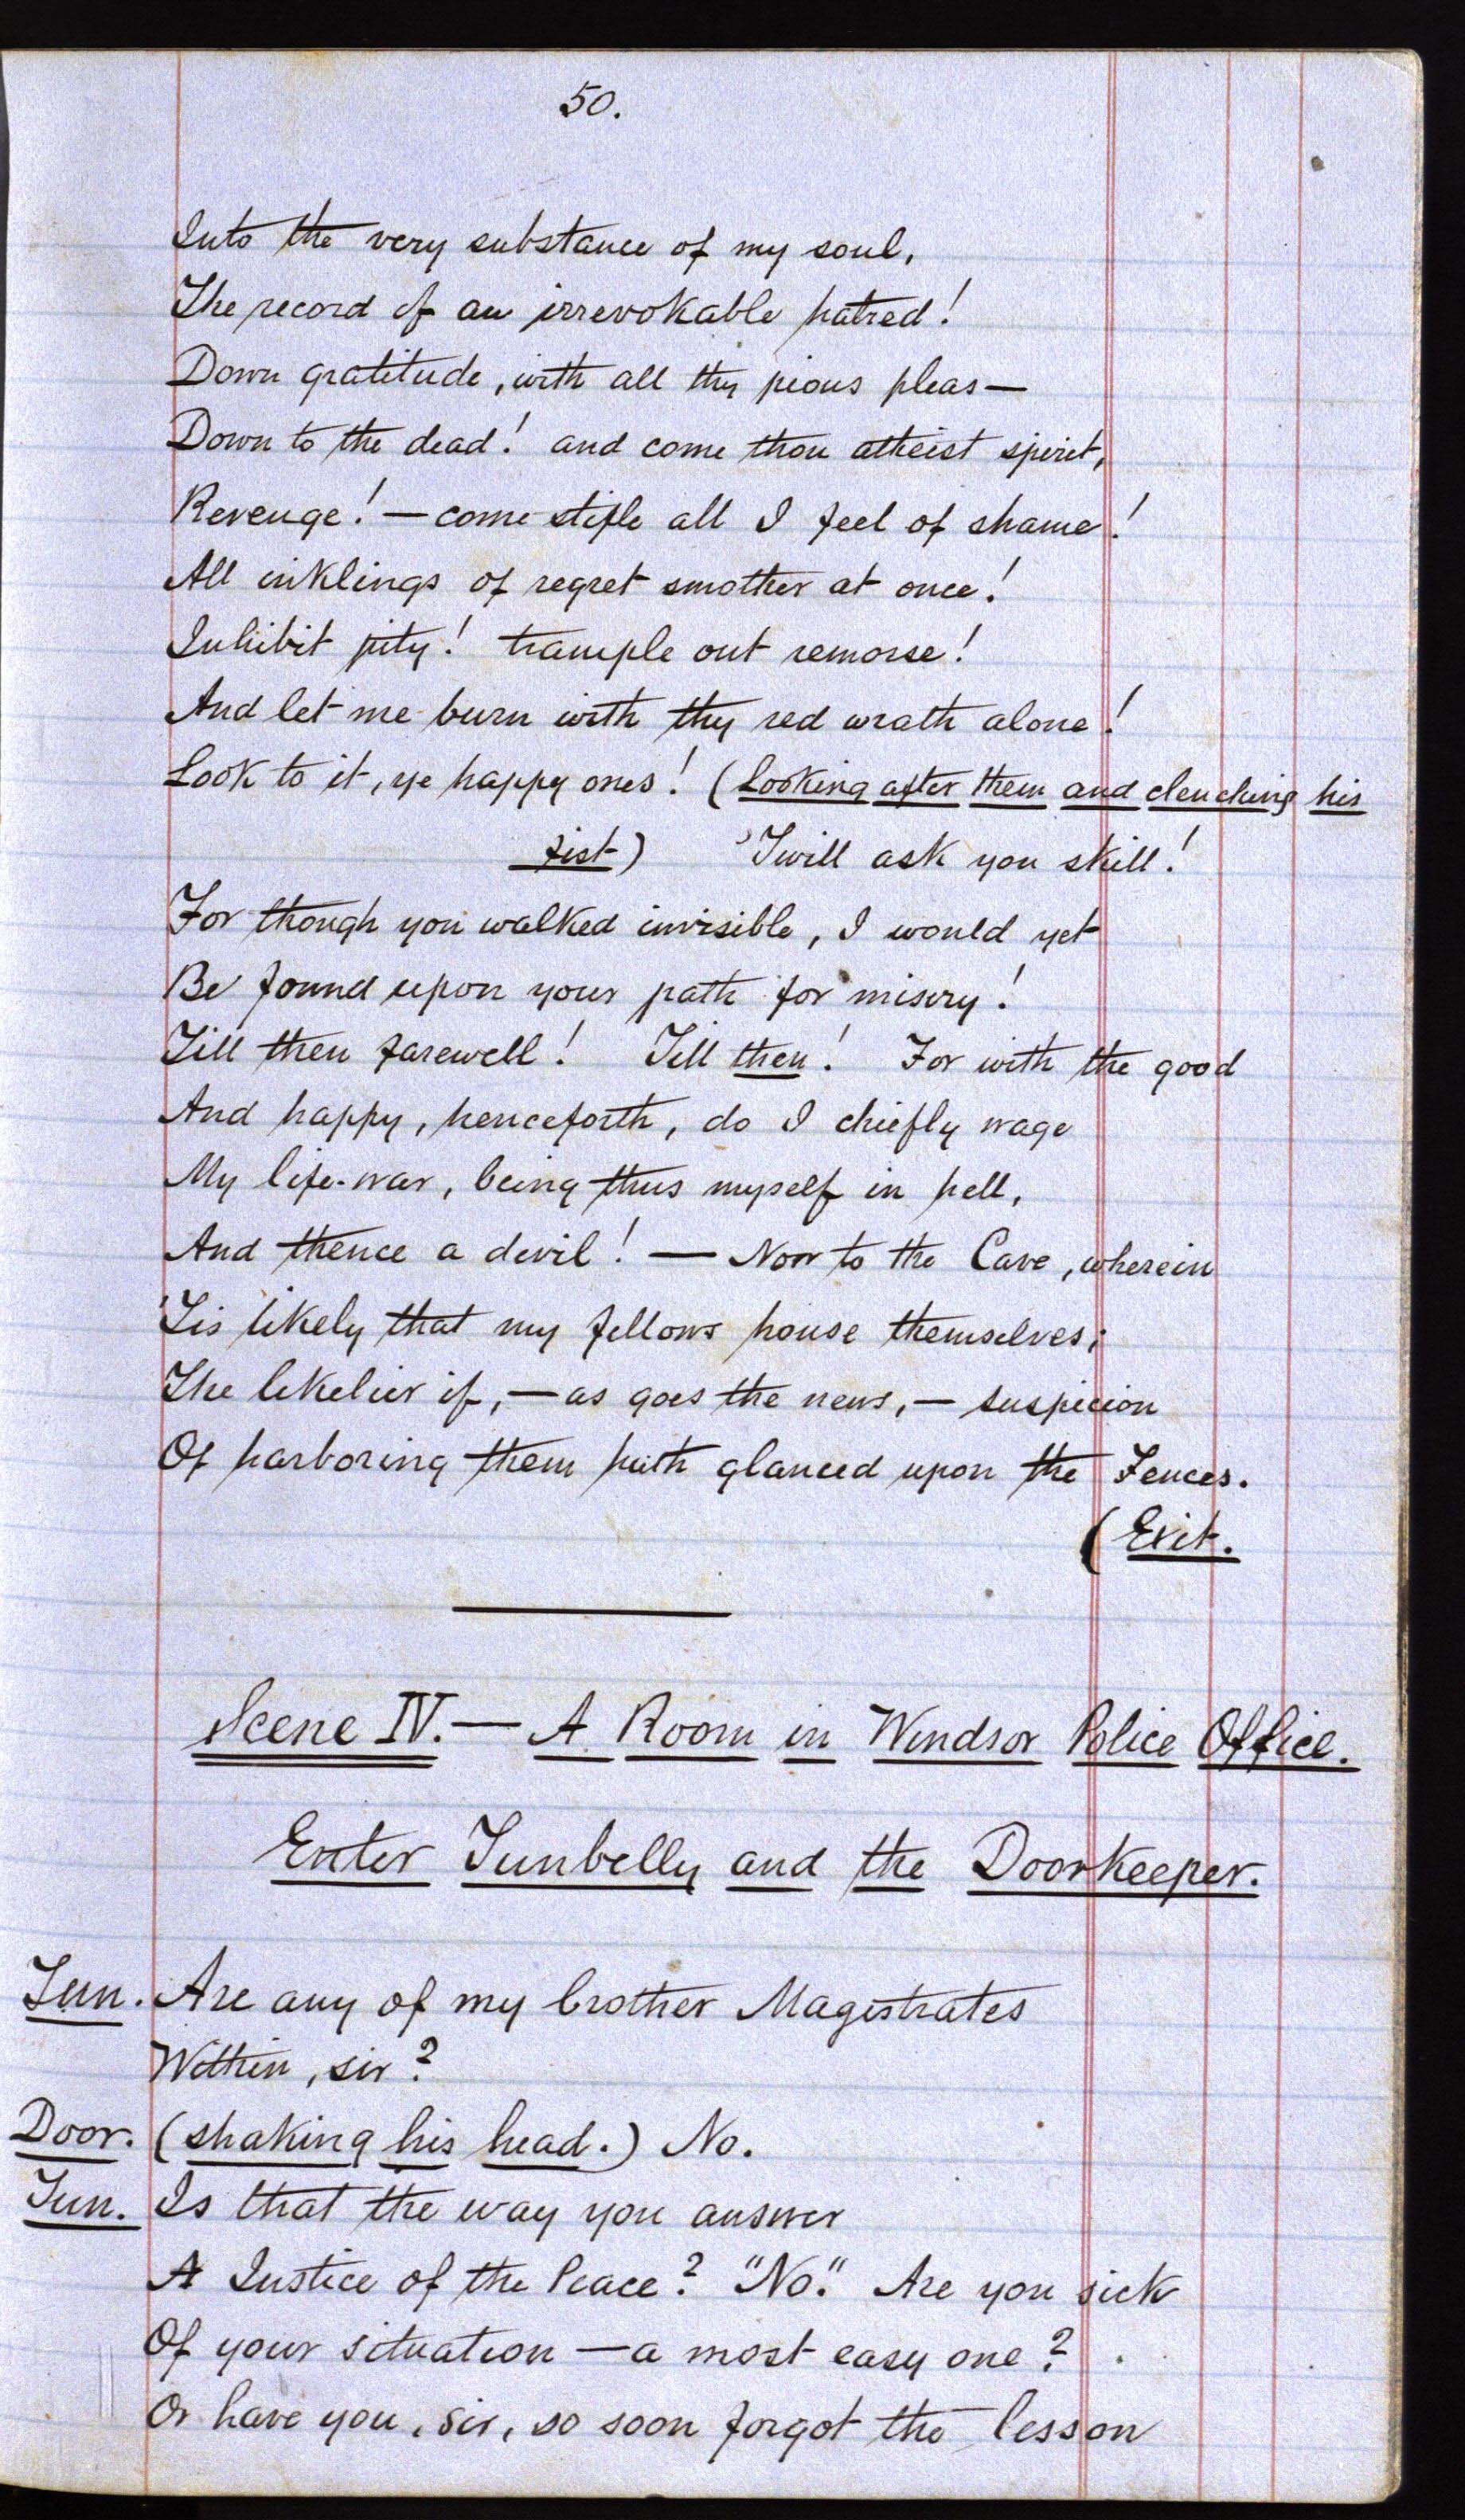 50.
Into the very substance of my soul,
The record of an irrevokable hatred!
Down gratitude, with all thy pious pleas—
Down to the dead! and come thou atheist spirit,
Revenge! — come stifle all I feel of shame!
All inklings of regret smother at once!
Inhibit pity! trample out remorse!
And let me burn with thy red wrath alone!
Look to it, ye happy ones! (Looking after them and clenching his
fist) 'Twill ask you skill!
For though you walked invisible, I would yet
Be found upon your path for misery!
Till then farewell! Till then! For with the good
And happy, henceforth, do I chiefly wage
My life-war, being thus myself in hell,
And thence a devil! — Now to the Cave, wherein
'Tis likely that my fellows house themselves;
The likelier if, — as goes the news, — suspicion
Of harboring them hath glanced upon the Fences.
(Exit.
Scene IV. — A Room in Windsor Police Office.
Enter Tunbelly and the Doorkeeper.
Tun. Are any of my brother Magistrates
Within, sir?
Door. (shaking his head.) No.
Tun. Is that the way you answer
A Justice of the Peace? "No." Are you sick
Of your situation — a most easy one?
Or have you, sir, so soon forgot the lesson